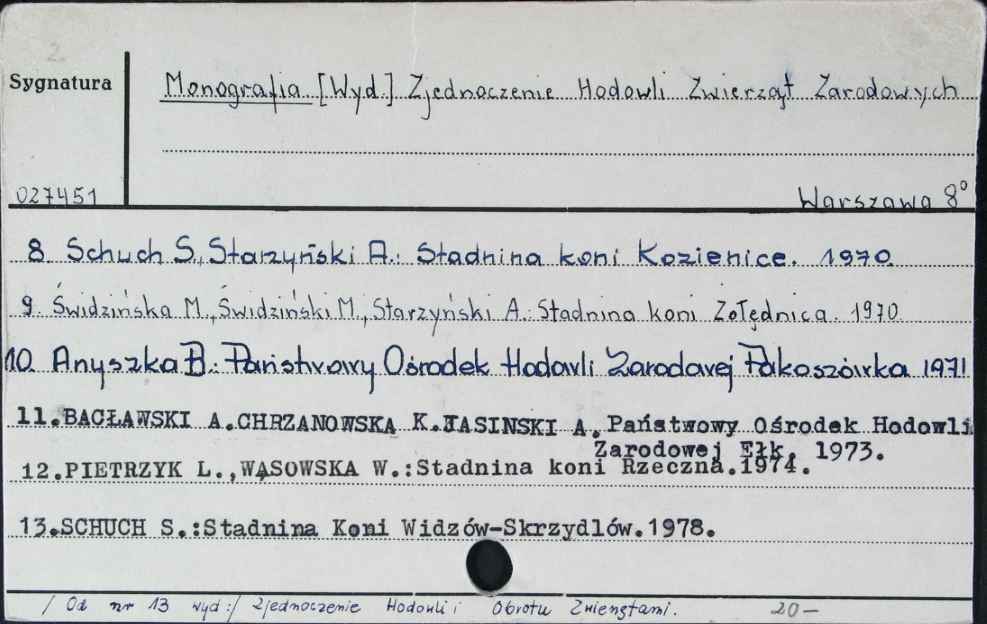 2
Sygnatura
Monografia [Wyd.] Zjednoczenie Hodowli Zwierząt Zarodowych
027451
Warszawa 8°
8. Schuch S., Starzyński A.: Stadnina koni Kozienice. 1970.
9. Świdzińska M., Świdziński M., Starzyński A.: Stadnina koni Żołędnica. 1970.
10. Anyszka B.: Państwowy Ośrodek Hodowli Zarodowej Pakoszówka 1971
11.BACŁAWSKI A.CHRZANOWSKA K.JASINSKI A. Państwowy Ośrodek Hodowli
Zarodowej Ełk. 1973.
12.PIETRZYK L.,WĄSOWSKA W.:Stadnina koni Rzeczna.1974.
13.SCHUCH S.:Stadnina Koni Widzów-Skrzydlów.1978.
/ Od nr 13 wyd:/ Zjednoczenie Hodowli i Obrotu Zwierzętami. 20-